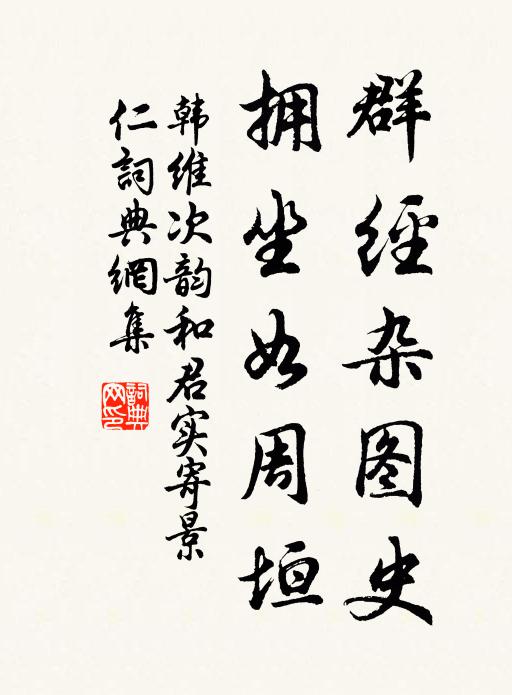 群經杂图史
拥坐如周垣
韩维次韵和君实寄景
仁詞典網集
詞典
网印